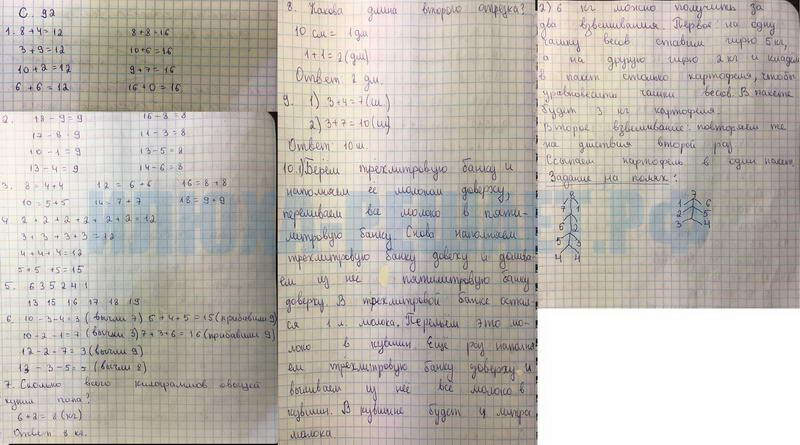 С. 92
1. 8+4=12   8+8=16
3+9=12   10+6=16
10+2=12   9+7=16
6+6=12   16+0=16
2. 18-9=9   16-8=8
17-8=9   11-3=8
10-1=9   13-5=8
13-4=9   14-6=8
3. 8=4+4   12=6+6   16=8+8
10=5+5   14=7+7   18=9+9
4. 2+2+2+2+2+2=12
3+3+3+3=12
4+4+4=12
5+5+5=15
5. 6 3 5 2 4 1
13 15 16 17 18 19
6. 10-3-4=3 (вычли 7) 6+4+5=15 (прибавили 9)
10-2-1=7 (вычли 3) 7+3+6=16 (прибавили 9)
12-2-7=3 (вычли 9)
12-3-5=5 (вычли 8)
7. Сколько всего килограммов овощей
купил папа?
6+2=8 (кг)
Ответ 8 кг.
8. Какова длина второго отрезка?
10 см = 1 дм
1+1=2 (дм)
Ответ 2 дм.
9. 1) 3+4=7 (м.)
2) 3+7=10 (м)
Ответ 10 м.
10. 1) Берём трёхлитровую банку и
наполняем её молоком доверху,
переливаем все молоко в пяти-
литровую банку. Снова наполняем
трёхлитровую банку доверху и долива-
ем из нее пятилитровую банку
доверху. В трёхлитровой банке остал-
ся 1 л. молока. Перельем это мо-
локо в кувшин. Еще раз наполня-
ем трехлитровую банку доверху и
выливаем из неё все молоко в
кувшин. В кувшине будет 4 литра
молока
2) 6 кг можно получить за
два взвешивания. Первое: на одну
чашку весов ставим гирю 5 кг,
а на другую гирю 2 кг и кладем
в пакет столько картофеля, чтобы
уравновесить чашки весов. В пакете
будет 3 кг картофеля.
Второе взвешивание: повторяем те
же действия второй раз
Ссыпаем картофель в один пакет.
Задание на полях:
8   7
7 1   1 6
6 2   2 5
5 3   3 4
4 4